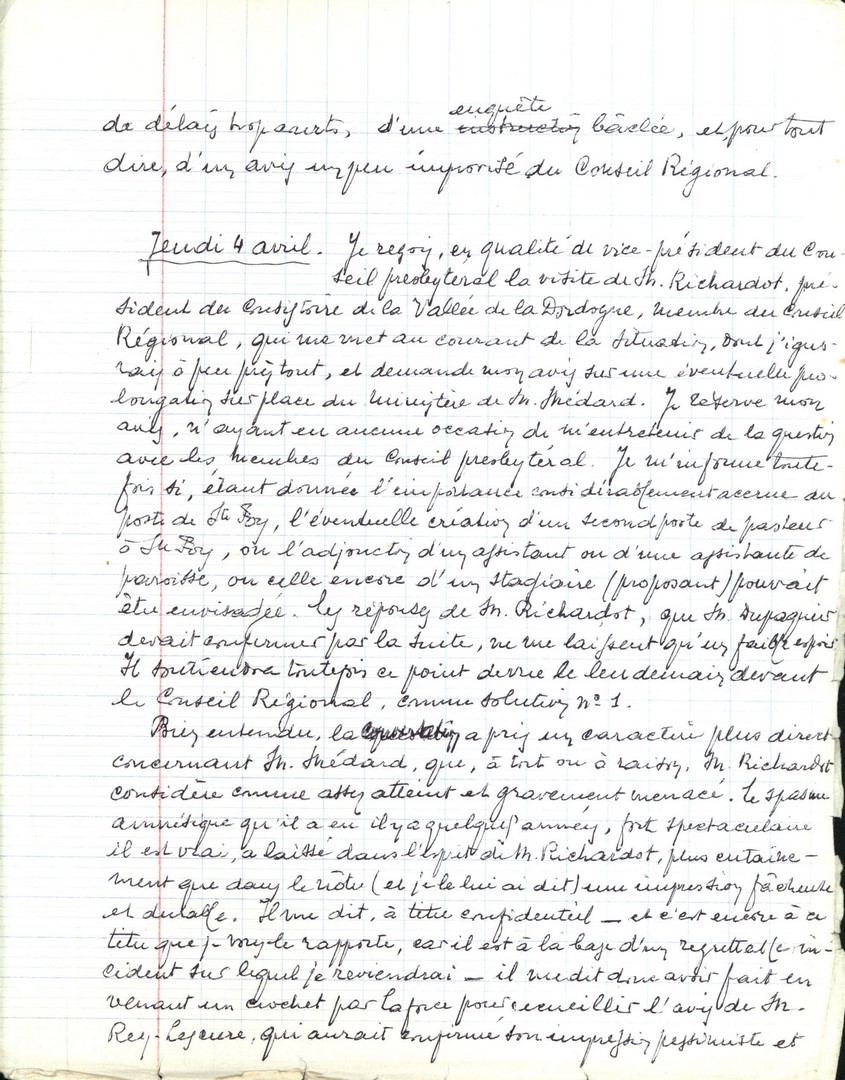 de délais trop courts, d'une enquête instruction bâclée, et, pour tout
dire, d'un avis un peu improvisé du Conseil Régional.
Jeudi 4 avril. Je reçois, en qualité de vice-président du Con-
seil presbytéral la visite de M. Richardot, pré-
sident du Consistoire de la Vallée de la Dordogne, membre du Conseil
Régional, qui me met au courant de la situation, dont j'igno-
rais à peu près tout, et demande mon avis sur une éventuelle pro-
longation sur place du ministère de M. Médard. Je réserve mon
avis, n'ayant eu aucune occasion de m'entretenir de la question
avec les membres du Conseil presbytéral. Je m'informe toute-
fois si, étant donnée l'importance considérablement accrue du
poste de Ste Foy, l'éventuelle création d'un second poste de pasteur
à Ste Foy, ou l'adjonction d'un assistant ou d'une assistante de
paroisse, ou celle encore d'un stagiaire (proposant) pouvait
être envisagée. Les réponses de M. Richardot, que M. Dupaquier
devait confirmer par la suite, ne me laissent qu'un faible espoir
Il soutiendra toutefois ce point de vue le lendemain devant
le Conseil Régional, comme solution n° 1.
Bien entendu, la conversation a pris un caractère plus direct
concernant M. Médard, que, à tort ou à raison, M. Richardot
considère comme assez atteint et gravement menacé. Le spasme
amnésique qu'il a eu il y a quelques années, fort spectaculaire
il est vrai, a laissé dans l'esprit de M. Richardot, plus certaine-
ment que dans le nôtre (et je le lui ai dit) une impression fâcheuse
et durable. Il me dit, à titre confidentiel — et c'est encore à ce
titre que je vous le rapporte, car il est à la base d'un regrettable in-
cident sur lequel je reviendrai — il me dit donc avoir fait en
venant un crochet par Laforce pour recueillir l'avis de M.
Rey-Lescure, qui aurait confirmé son impression pessimiste et